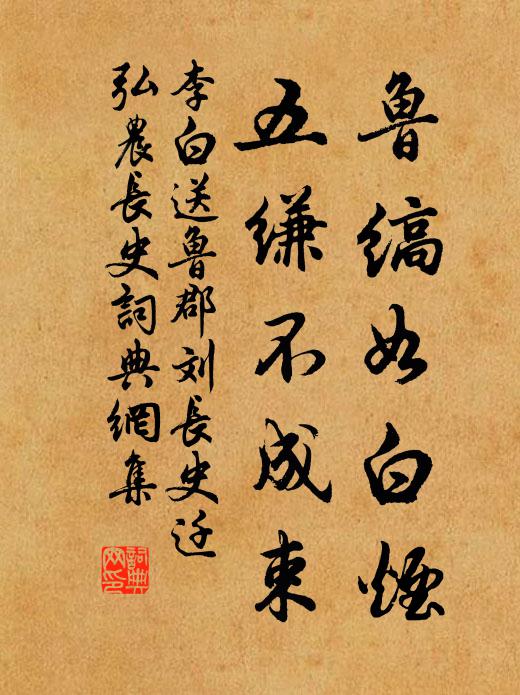 鲁缟如白煙
五缣不成束
李白送鲁郡刘长史迁
弘農長史詞典網集
詞典網印